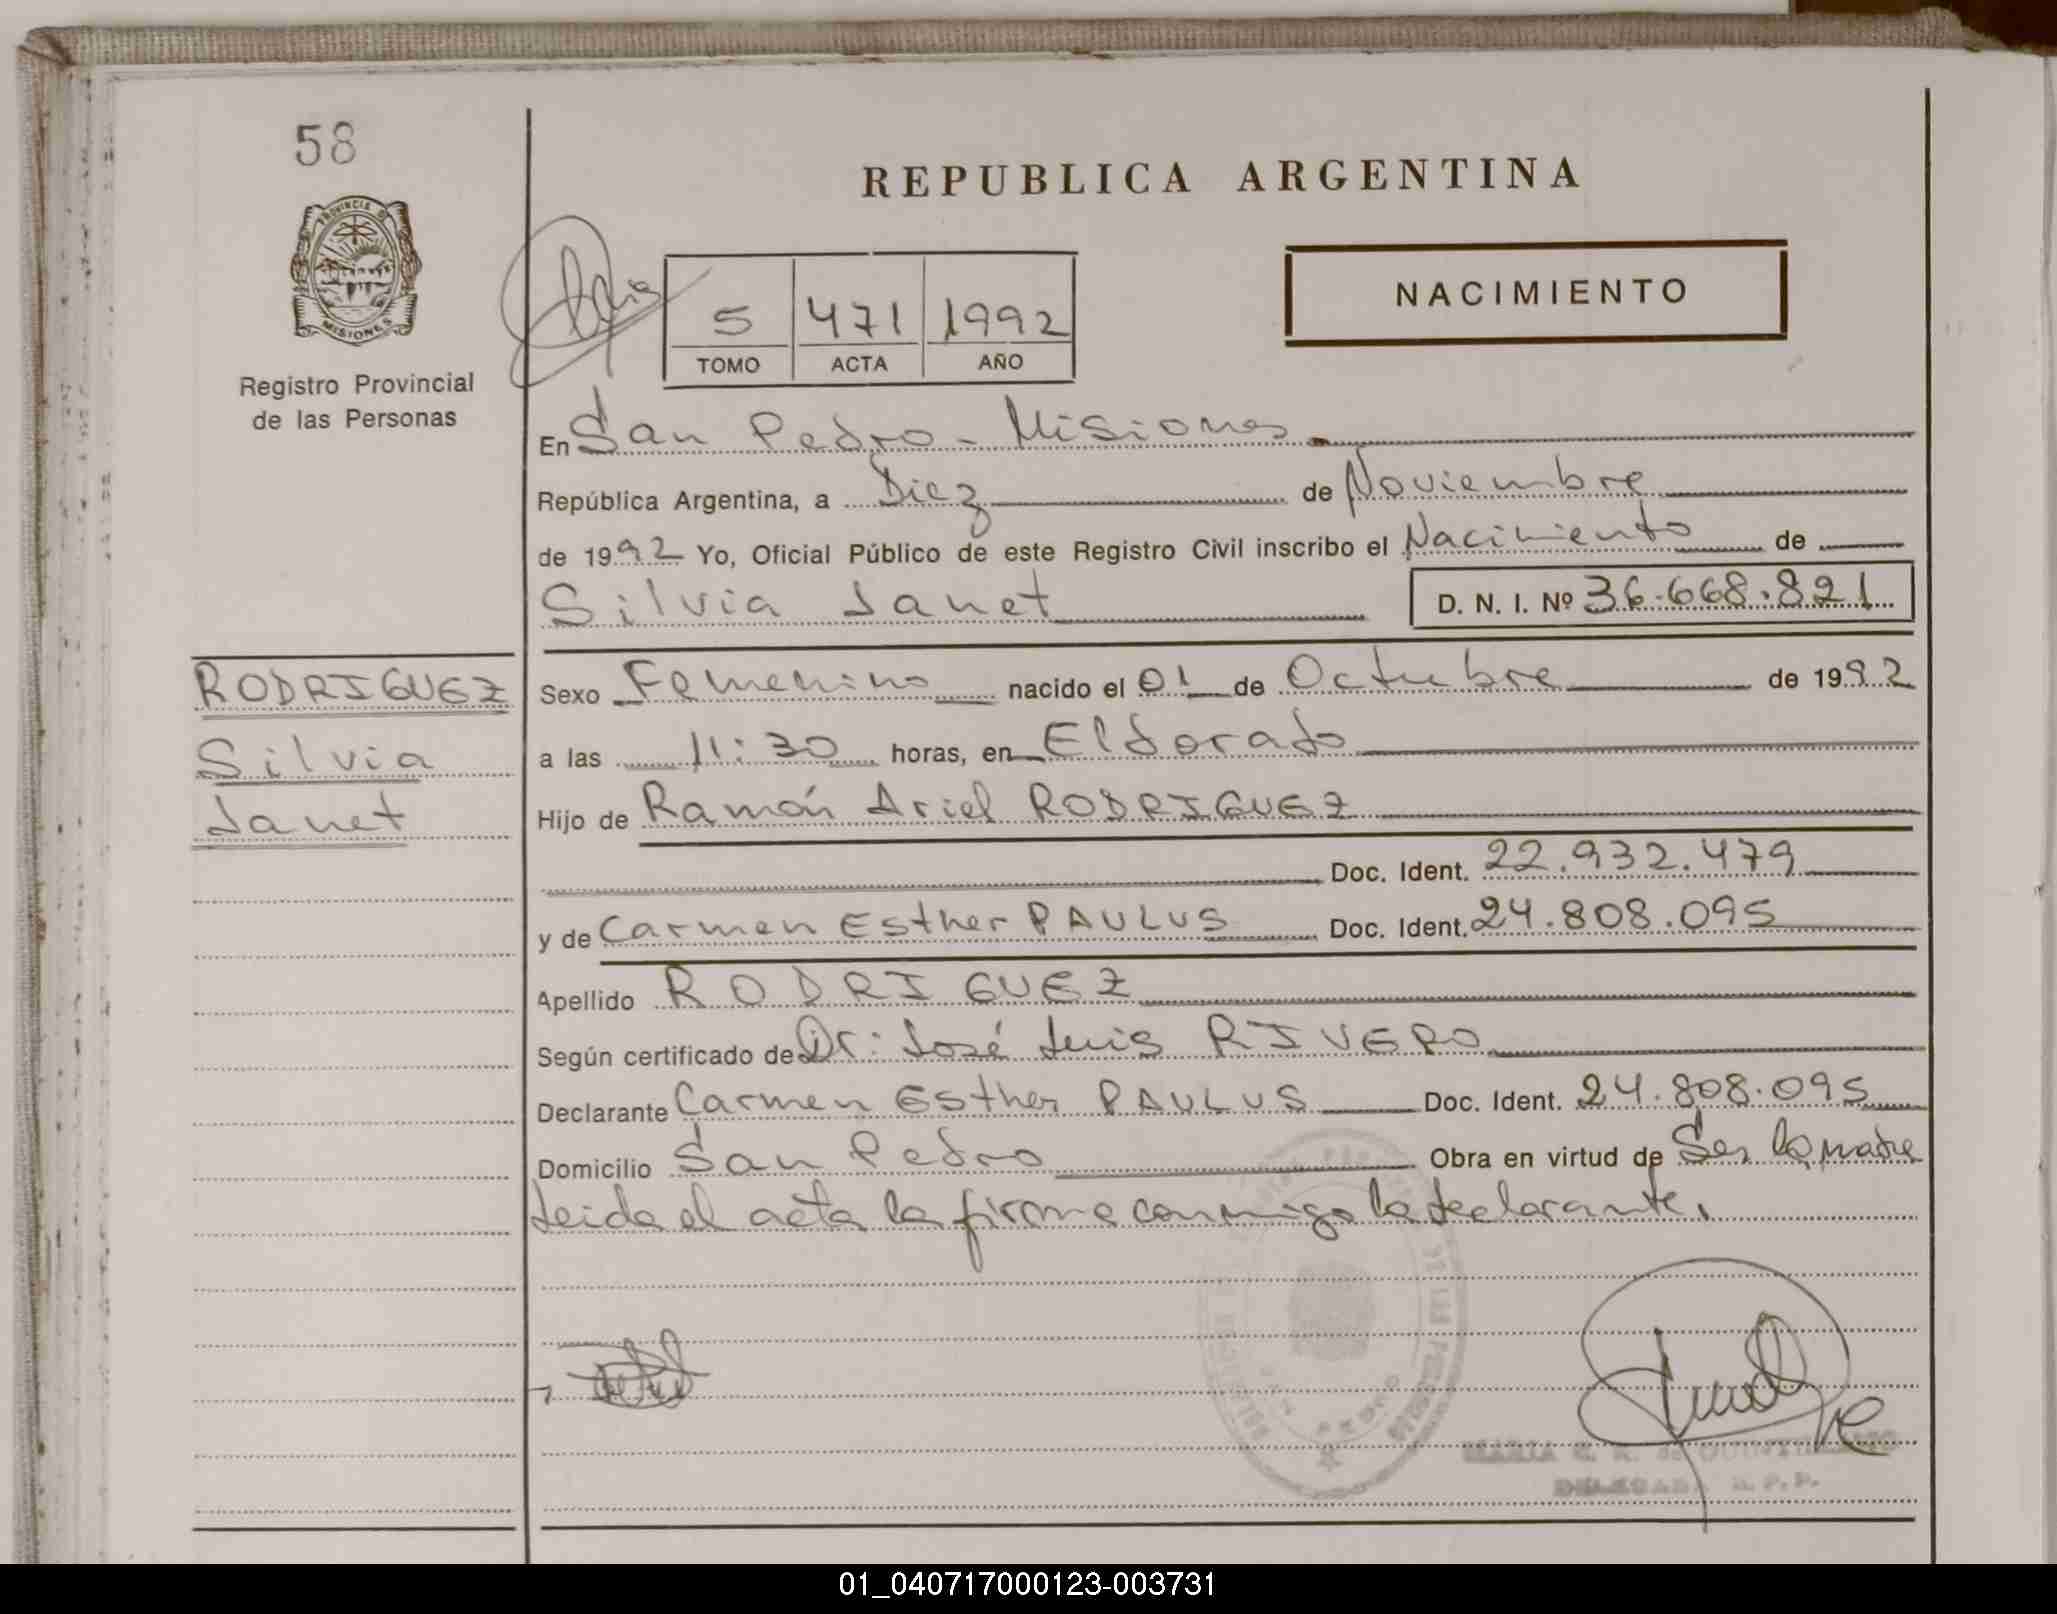 58
REPUBLICA ARGENTINA
PROVINCIA DE
MISIONES
Registro Provincial
de las Personas
5 471 1992
TOMO ACTA AÑO
NACIMIENTO
En San Pedro - Misiones
República Argentina, a Diez de Noviembre
de 1992 Yo, Oficial Público de este Registro Civil inscribo el Nacimiento de
Silvia Janet D. N. I. Nº 36.668.821
RODRIGUEZ
Silvia
Janet
Sexo Femenino nacido el 01 de Octubre de 1992
a las 11:30 horas, en Eldorado
Hijo de Ramón Ariel RODRIGUEZ
Doc. Ident. 22.932.479
y de Carmen Esther PAULUS Doc. Ident. 24.808.095
Apellido RODRIGUEZ
Según certificado de Dr: José Luis RIVERO
Declarante Carmen Esther PAULUS Doc. Ident. 24.808.095
Domicilio San Pedro Obra en virtud de Ser la madre
Leida el acta la firma conmigo la declarante.
MARIA
DELEGADA R.P.P.
01_040717000123-003731